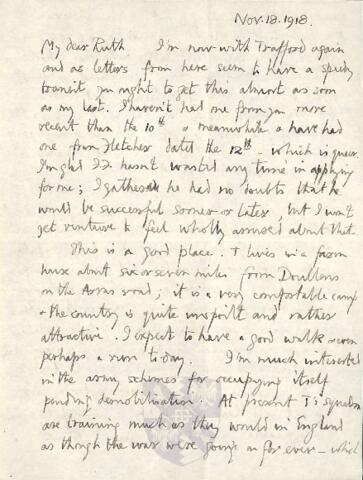 Nov. 18. 1918.
My dear Ruth I'm now with Trafford again
and as letters from here seem to have a speedy
transit you ought to get this almost as soon
as my last. I haven't had one from you more
recent than the 10th & meanwhile I have had
one from Fletcher dated the 12th - which is queer.
I'm glad he hasn't wasted any time in applying
for me; I gather he had no doubts that he
would be successful sooner or later, but I won't
yet venture to feel wholly assured about that.
This is a good place. T lives in a farm
house about six or seven miles from Doullens
on the Arras road; it is a very comfortable camp
& the country is quite unspoilt and rather
attractive. I expect to have a good walk & even
perhaps a run to-day. I'm much interested
in the army schemes for occupying itself
pending demobilisation. At present T's squadron
are training much as they would in England
as though the war were going on for ever - which